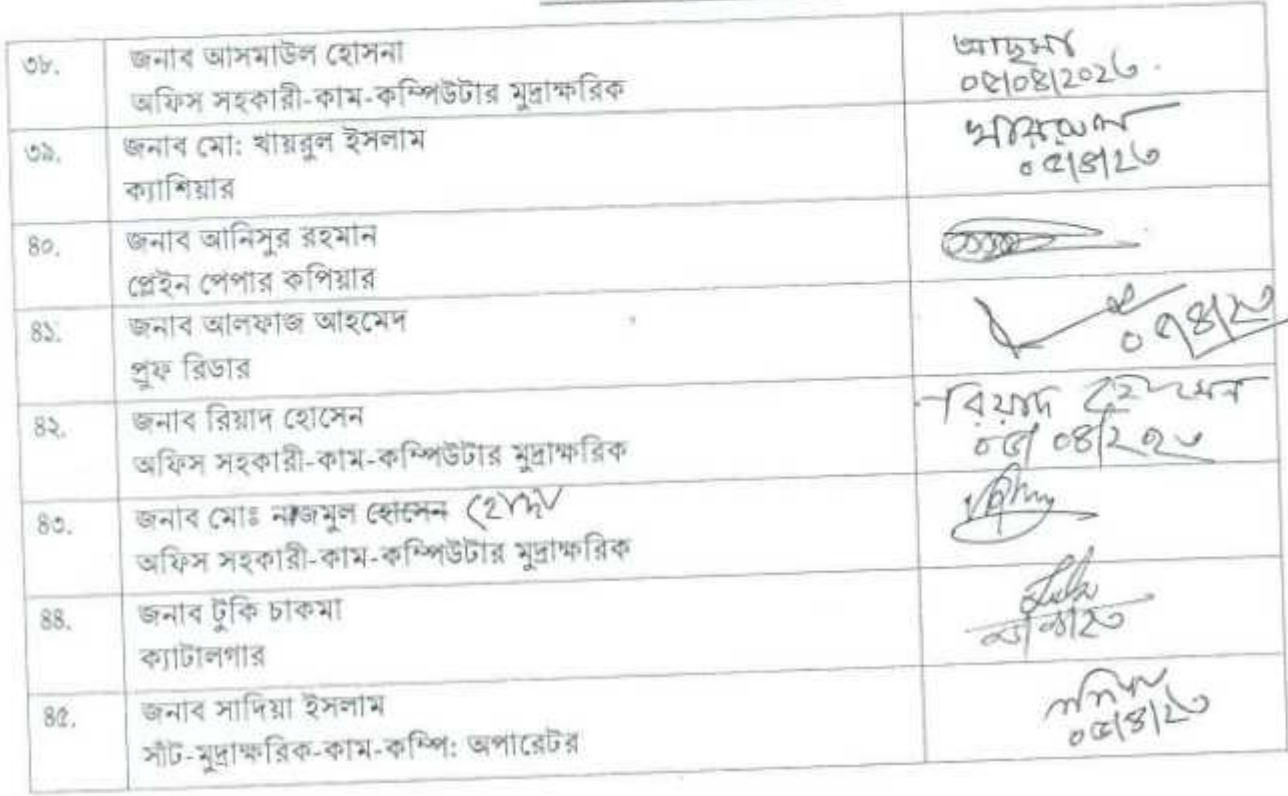 ৩৮.
জনাব আসমাউল হোসনা
অফিস সহকারী-কাম-কম্পিউটার মুদ্রাক্ষরিক
০৫/০৪/২০২৩
৩৯.
জনাব মো: খায়রুল ইসলাম
ক্যাশিয়ার
খায়রুল
০৫/৪/২৩
৪০.
জনাব আনিসুর রহমান
প্লেইন পেপার কপিয়ার
৪১.
জনাব আলফাজ আহমেদ
প্রুফ রিডার
০৫/৪/২৩
৪২.
জনাব রিয়াদ হোসেন
অফিস সহকারী-কাম-কম্পিউটার মুদ্রাক্ষরিক
রিয়াদ হোসেন
০৫/০৪/২০২৩
৪৩.
জনাব মোঃ নাজমুল হোসেন
অফিস সহকারী-কাম-কম্পিউটার মুদ্রাক্ষরিক
৪৪.
জনাব টুকি চাকমা
ক্যাটালগার
৪৫.
জনাব সাদিয়া ইসলাম
সাঁট-মুদ্রাক্ষরিক-কাম-কম্পি: অপারেটর
০৫/৪/২৩